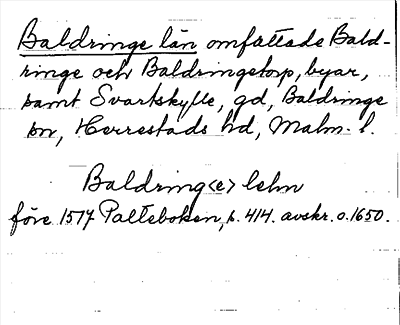 Baldringe län omfattade Bald-
ringe och Baldringetorp, byar,
samt Svartskylle, gd, Baldringe
sn, Herrestads hd, Malm. l.
Baldring<e> lehn
före 1517 Palteboken, s. 414. avskr. o. 1650.